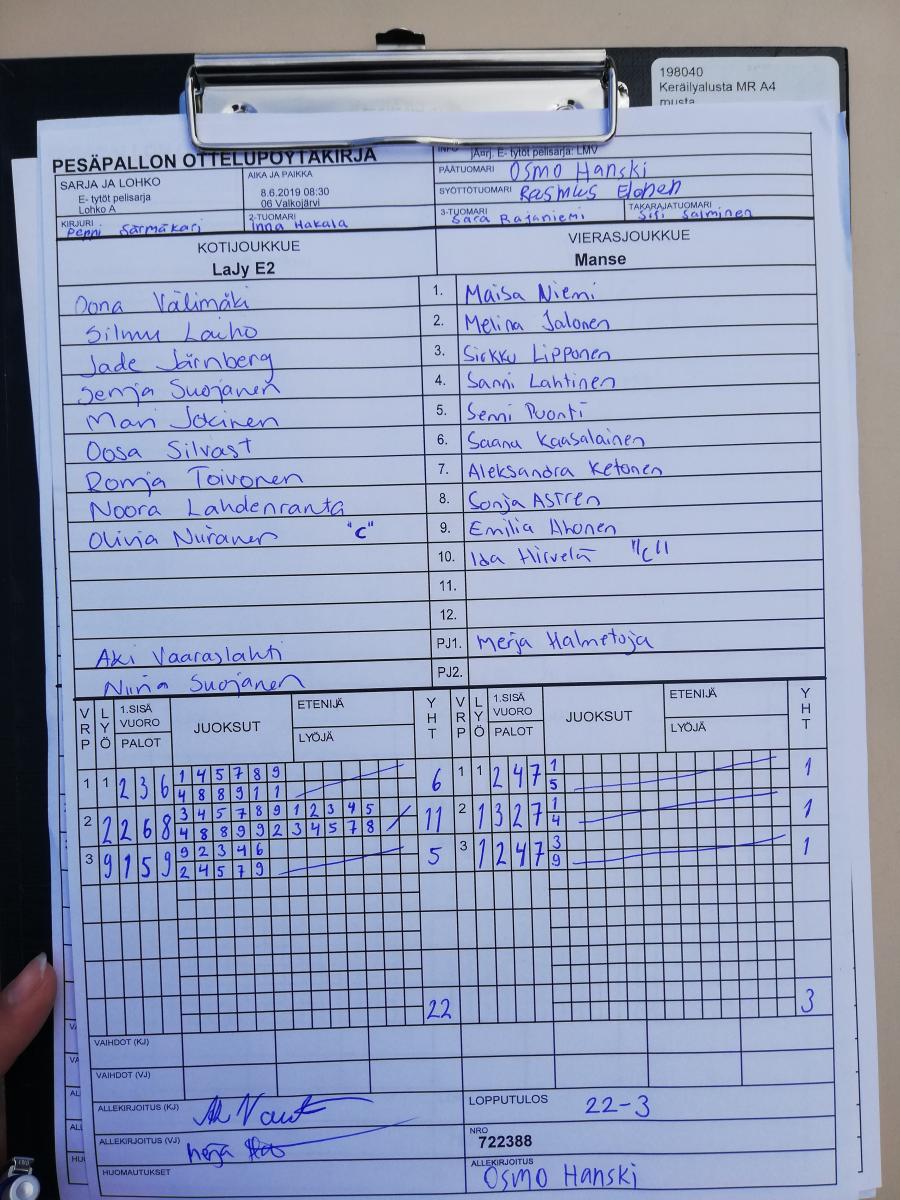 198040
Keräilyalusta MR A4
musta
PESÄPALLON OTTELUPÖYTÄKIRJA
INFO Järj. E- tytöt pelisarja: LMV
SARJA JA LOHKO
E- tytöt pelisarja
Lohko A
AIKA JA PAIKKA
8.6.2019 08:30
06 Valkojärvi
PÄÄTUOMARI Osmo Hanski
SYÖTTÖTUOMARI Rasmus Elonen
KIRJURI Peppi Särmäkari
2-TUOMARI Inna Hakala
3-TUOMARI Sara Rajaniemi
TAKARAJATUOMARI Sisi Salminen
KOTIJOUKKUE VIERASJOUKKUE
LaJy E2 Manse
Oona Välimäki 1. Maisa Niemi
Silmu Laiho 2. Melina Jalonen
Jade Järnberg 3. Sirkku Lipponen
Senja Suojanen 4. Sanni Lahtinen
Mari Jokinen 5. Senni Puonti
Oosa Silvast 6. Saana Kaasalainen
Ronja Toivonen 7. Aleksandra Ketonen
Noora Lahdenranta 8. Sonja Astren
Olivia Niiranen "C" 9. Emilia Ahonen
10. Ida Hirvelä "C"
11.
12.
Aki Vaaraslahti PJ1. Merja Halmetoja
Niina Suojanen PJ2.
VRP LYÖ 1.SISÄ VUORO PALOT JUOKSUT ETENIJÄ LYÖJÄ YHT VRP LYÖ 1.SISÄ VUORO PALOT JUOKSUT ETENIJÄ LYÖJÄ YHT
1 1 2 3 6 1 4 5 7 8 9 6 1 1 2 4 7 1 1
4 8 8 9 1 1 5
2 2 2 6 8 3 4 5 7 8 9 1 2 3 4 5 11 2 1 3 2 7 1 1
4 8 8 9 9 2 3 4 5 7 8 4
3 9 1 5 9 9 2 3 4 6 5 3 1 2 4 7 3 1
2 4 5 7 9 9
22 3
VAIHDOT (KJ)
VAIHDOT (VJ)
ALLEKIRJOITUS (KJ)
LOPPUTULOS 22-3
ALLEKIRJOITUS (VJ)
NRO
722388
HUOMAUTUKSET
ALLEKIRJOITUS
Osmo Hanski